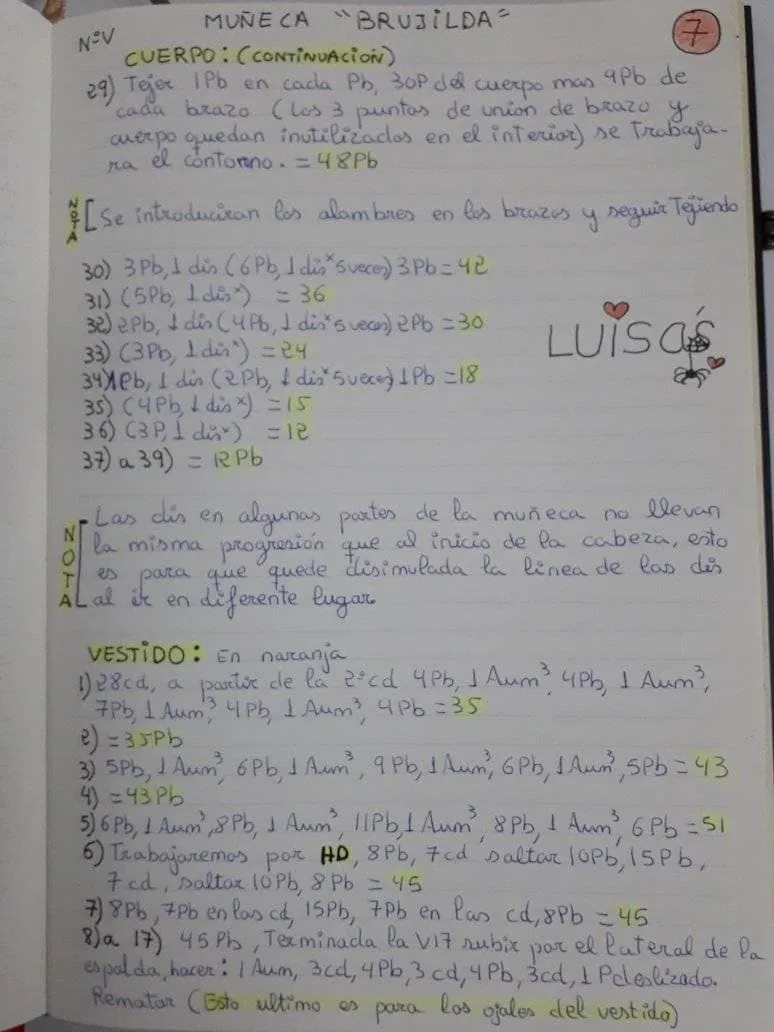 MUÑECA "BRUJILDA"
7
NºV
CUERPO: (CONTINUACION)
29) Tejer 1Pb en cada Pb, 30P del cuerpo mas 9Pb de
cada brazo (Los 3 puntos de union de brazo y
cuerpo quedan inutilizados en el interior) se trabaja-
ra el contorno. = 48Pb
NOTA [Se introduciran los alambres en los brazos y seguir Tejiendo
30) 3Pb, 1 dis (6Pb, 1 dis* 5 veces) 3Pb = 42
31) (5Pb, 1 dis*) = 36
32) 2Pb, 1 dis (4Pb, 1 dis* 5 veces) 2Pb = 30
33) (3Pb, 1 dis*) = 24
34) 1Pb, 1 dis (2Pb, 1 dis* 5 veces) 1Pb = 18
35) (4Pb, 1 dis*) = 15
36) (3P, 1 dis*) = 12
37) a 39) = 12Pb
LUISA's
NOTA
Las dis en algunas partes de la muñeca no llevan
la misma progresión que al inicio de la cabeza, esto
es para que quede disimulada la linea de las dis
al ir en diferente lugar
VESTIDO: En naranja
1) 28cd, a partir de la 2ª cd 4Pb, 1 Aum³, 4Pb, 1 Aum³,
7Pb, 1 Aum³, 4Pb, 1 Aum³, 4Pb = 35
2) = 35Pb
3) 5Pb, 1 Aum³, 6Pb, 1 Aum³, 9Pb, 1 Aum³, 6Pb, 1 Aum³, 5Pb = 43
4) = 43Pb
5) 6Pb, 1 Aum³, 8Pb, 1 Aum³, 11Pb, 1 Aum³, 8Pb, 1 Aum³, 6Pb = 51
6) Trabajaremos por HD, 8Pb, 7cd saltar 10Pb, 15Pb,
7cd, saltar 10Pb, 8Pb = 45
7) 8Pb, 7Pb en las cd, 15Pb, 7Pb en las cd, 8Pb = 45
8) a 17) 45Pb, Terminada la V17 subir por el lateral de la
espalda, hacer: 1 Aum, 3cd, 4Pb, 3cd, 4Pb, 3cd, 1 P.deslizado.
Rematar (Esto ultimo es para los ojales del vestido)